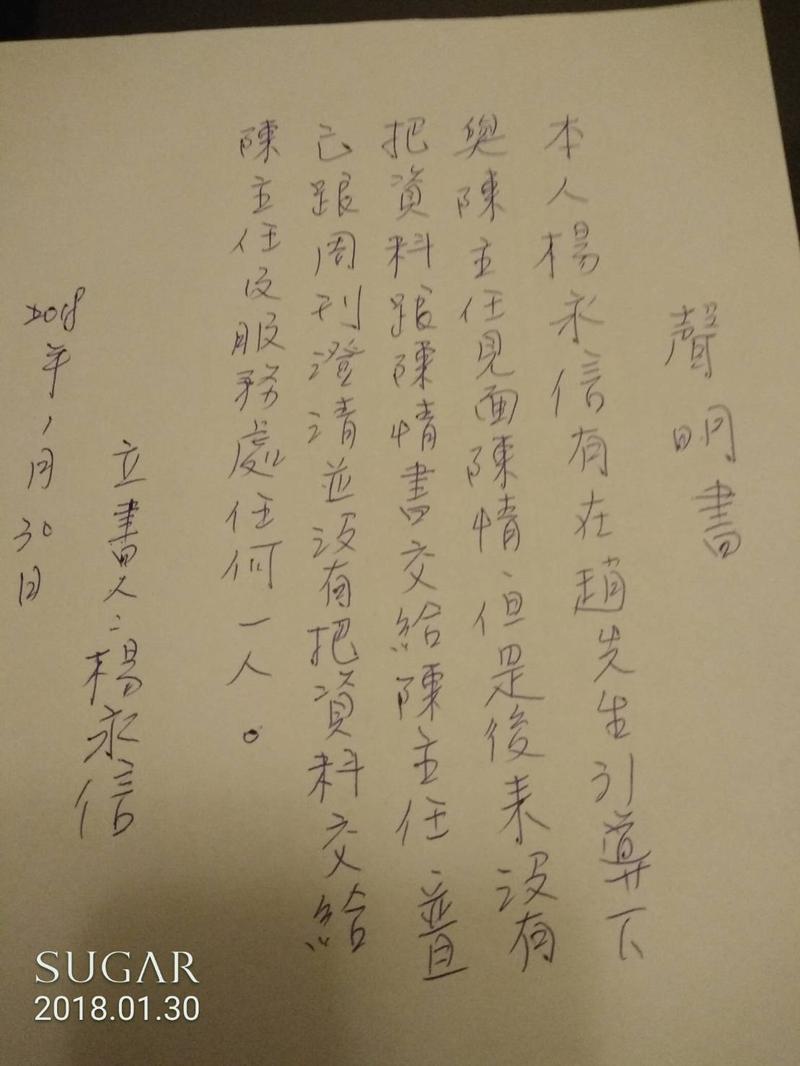 聲明書
本人楊永信有在趙先生引導下
與陳主任見面陳情,但是後來没有
把資料跟陳情書交給陳主任,並且
己跟周刊澄清並没有把資料交給
陳主任及服務處任何一人。
立書人:楊永信
2018年1月30日
SUGAR
2018.01.30